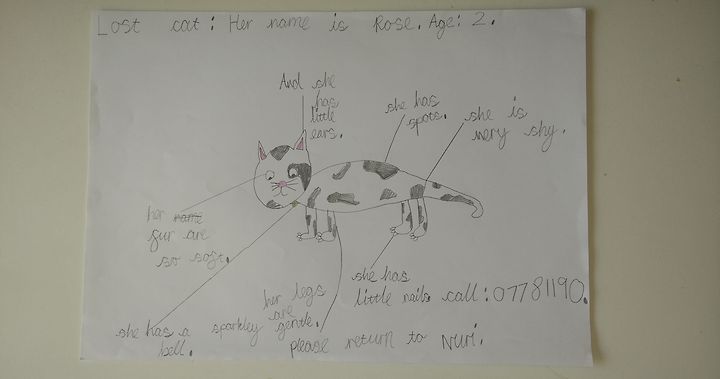 Lost cat: Her name is Rose. Age: 2.
And she
has
little
ears.
she has
spots.
she is
very shy.
her name
fur are
so soft.
she has
little nails
call: 07781190.
her legs
are
gentle.
she has a sparkley
bell.
please return to Nuri.